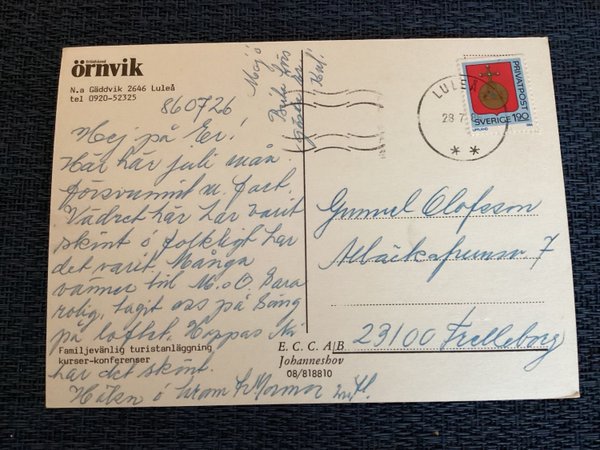 Fritidsland
örnvik
N.a Gäddvik 2646 Luleå
tel 0920-52325
860726
Hej på Er!
Här har juli mån
försvunnit m. fart.
Vädret har har varit
skönt o folkligt har
det varit. Många
vänner till M.o O. Bara
rolig, tagit oss på säng
på loftet. Hoppas Ni
har det skönt.
Familjevänlig turistanläggning
kurser-konferenser
Hälsn o kram fr Mormor
Hej o
LULEÅ
28.7.
PRIVATPOST
SVERIGE 190
UPPLAND
Gunnel Olofsson
7
23100 Trelleborg
E.C.C. A|B
Johanneshov
08/818810